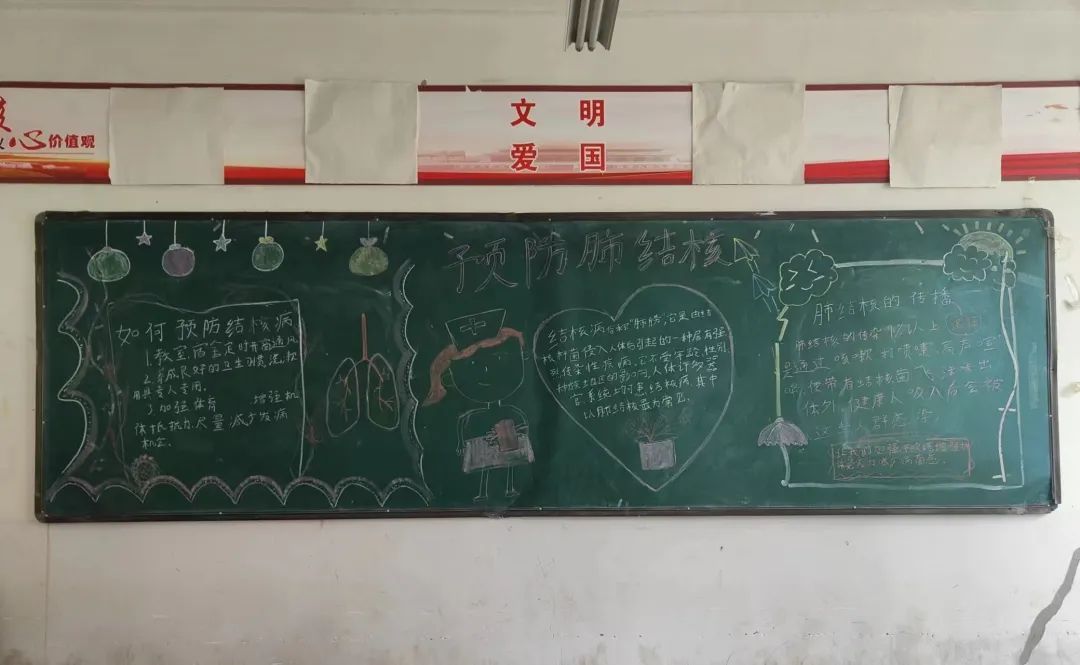 心价值观
文 明
爱 国
预防肺结核
如何预防结核病
1.教室宿舍定时开窗通风
2.养成良好的卫生习惯,
用具专人专用.
3加强体育 增强机
体抵抗力.尽量减少发病
机会.
结核病俗称"肺痨",它是由结
核杆菌侵入人体后引起的一种具有强
烈传染性疾病,它不受年龄,性别,
种族,地区的影响,人体许多器
官系统均可患结核病,其中
以肺结核最为常见.
肺结核的传播
肺结核的传染
通过 咳嗽 打喷嚏,高声
带有结核菌飞沫
体外,健康人吸入后会被